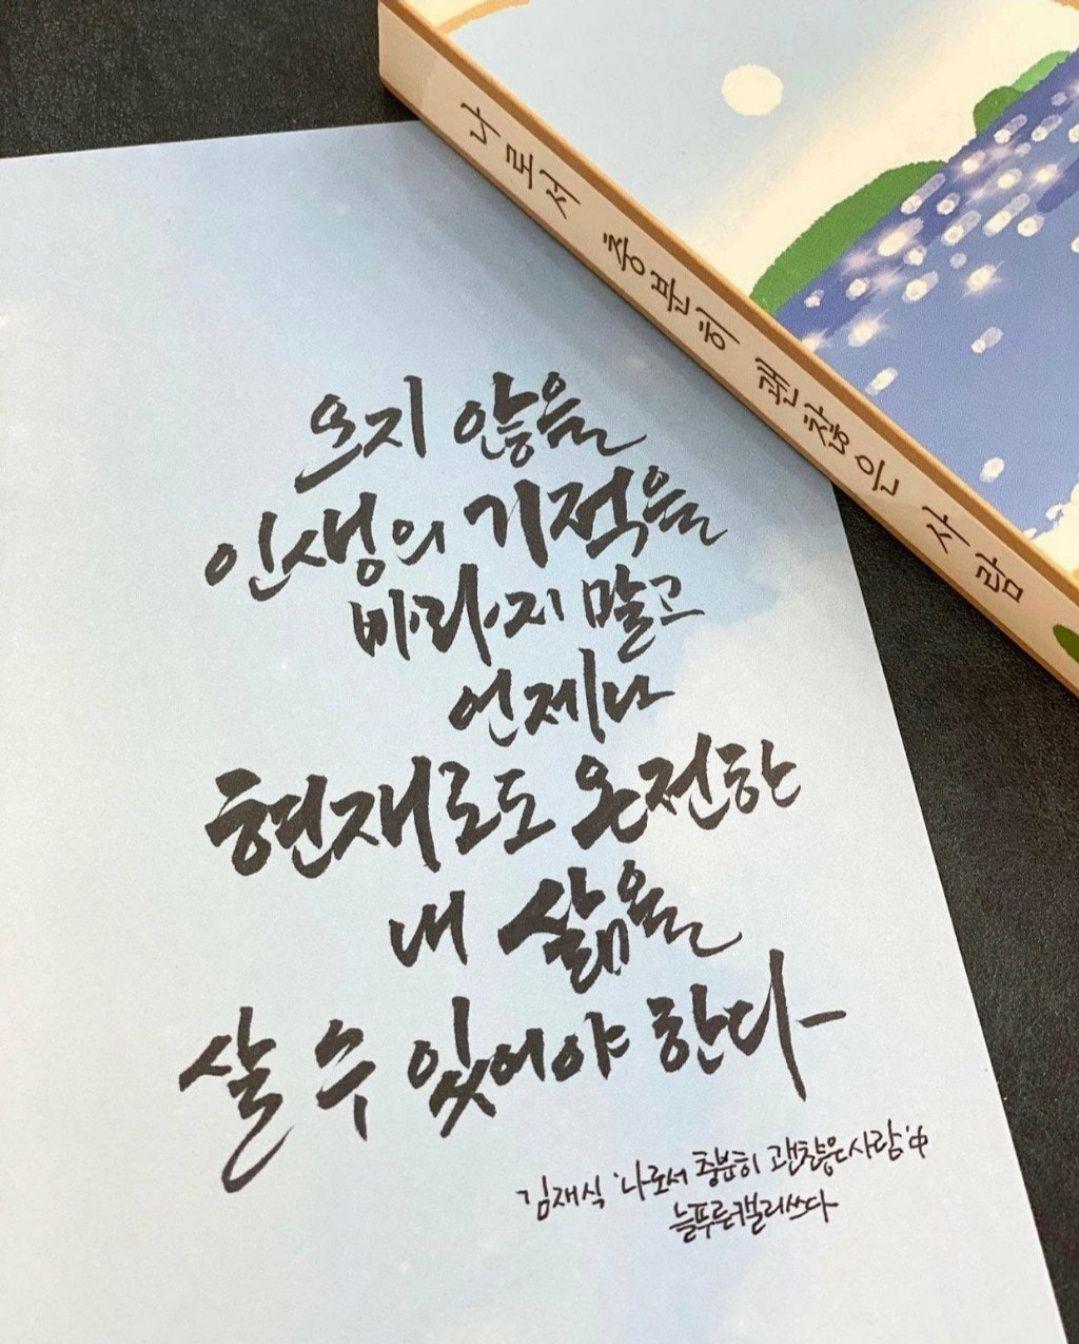 나로서 충분히 괜찮은 사람
오지 않을
인생의 기적을
바라지 말고
언제나
현재로도 온전한
내 삶을
살 수 있어야 한다
김재식 '나로서 충분히 괜찮은 사람' 中
늘푸른캘리쓰다